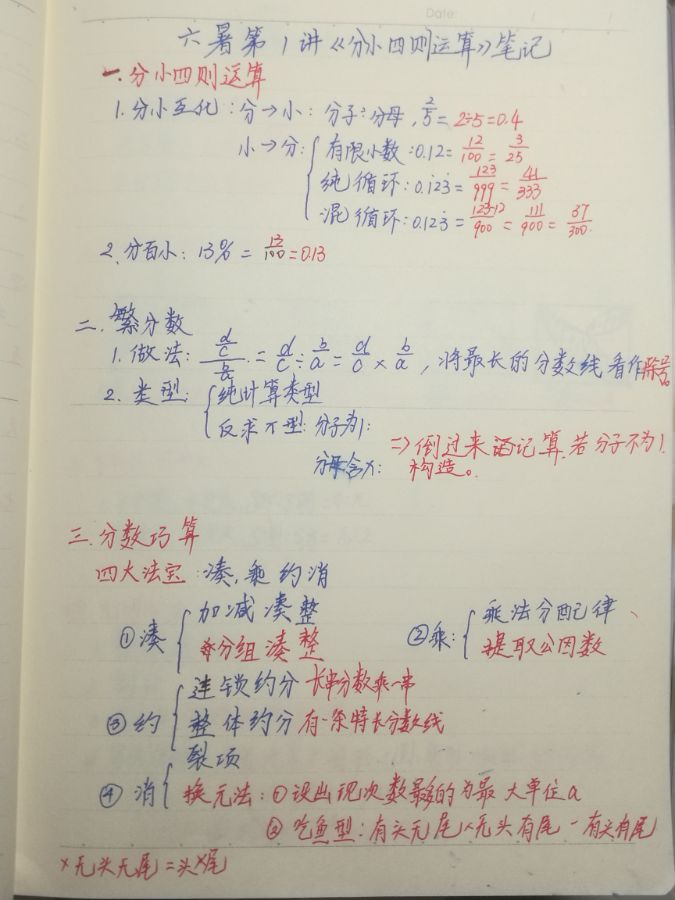 Date:
六暑第1讲《分小四则运算》笔记
一.分小四则运算
1.分小互化:分→小:分子÷分母,2/5=2÷5=0.4
小→分:{有限小数:0.12=12/100=3/25
纯循环:0.1̇23̇=123/999=41/333
混循环:0.123̇=123-12/900=111/900=37/300.
2.分百小:13%=13/100=0.13
二.繁分数
1.做法:=d/c÷b/a=d/c×b/a,将最长的分数线看作除号。
2.类型:{纯计算类型
反求π型:分子为1:
分母含x:
=>倒过来 记算.若分子不为1.
构造。
三.分数巧算
四大法宝:凑,乘约消
①凑{加减凑整
分组凑整
②乘:{乘法分配律、
提取公因数
③约{连锁约分 长串分数乘一串
整体约分 有一条特长分数线
④消{裂项
换元法:①设出现次数最多的为最大单位a
②吃鱼型:有头无尾×无头有尾-有头有尾
×无头无尾=头×尾